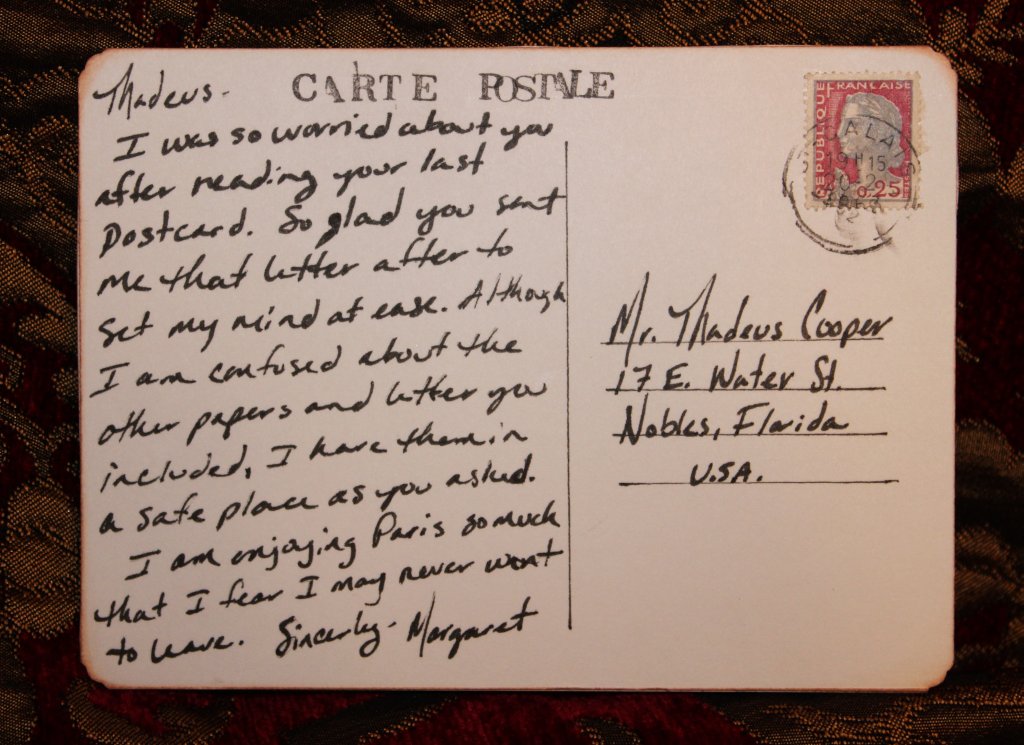 CARTE POSTALE
Thadeus-
I was so worried about you
after reading your last
Postcard. So glad you sent
me that letter after to
set my mind at ease. Although
I am confused about the
other papers and letter you
included, I have them in
a safe place as you asked.
I am enjoying Paris so much
that I fear I may never want
to leave. Sincerly- Margaret
REPUBLIQUE
FRANÇAISE
0.25
19H15
20-2
Mr. Thadeus Cooper
17 E. Water St.
Nobles, Florida
U.S.A.